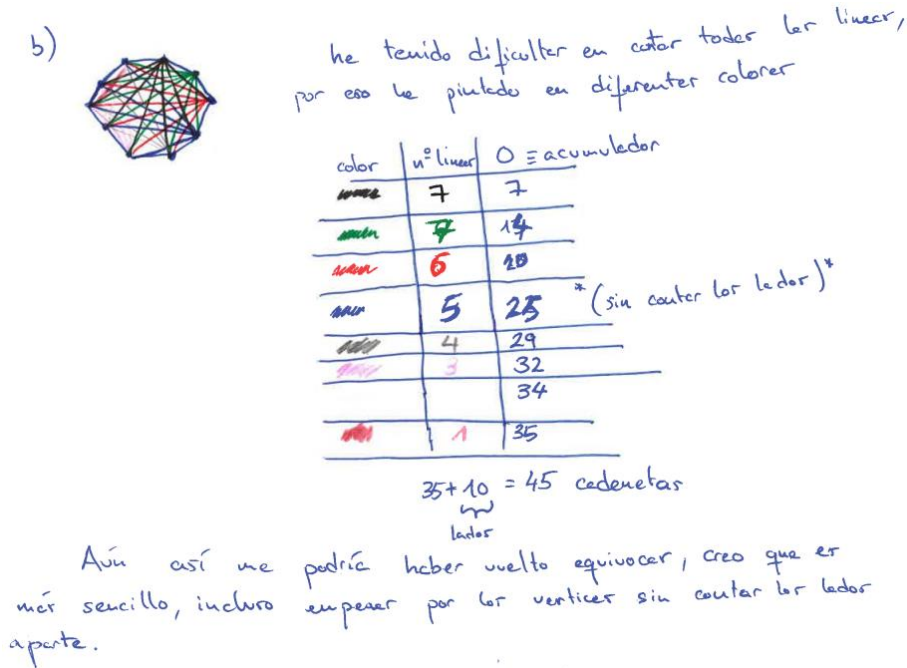 b)
he tenido dificultes en contar todas las lineas,
por eso he pintado en diferentes colores
color nº lineas O ≡ acumulador
7 7
7 14
6 20
5 25 *(sin contar los lados)*
4 29
3 32
34
1 35
35+10 = 45 cadenetas
lados
Aún así me podría haber vuelto equivocar, creo que es
más sencillo, incluso empezar por los vertices sin contar los lados
aparte.